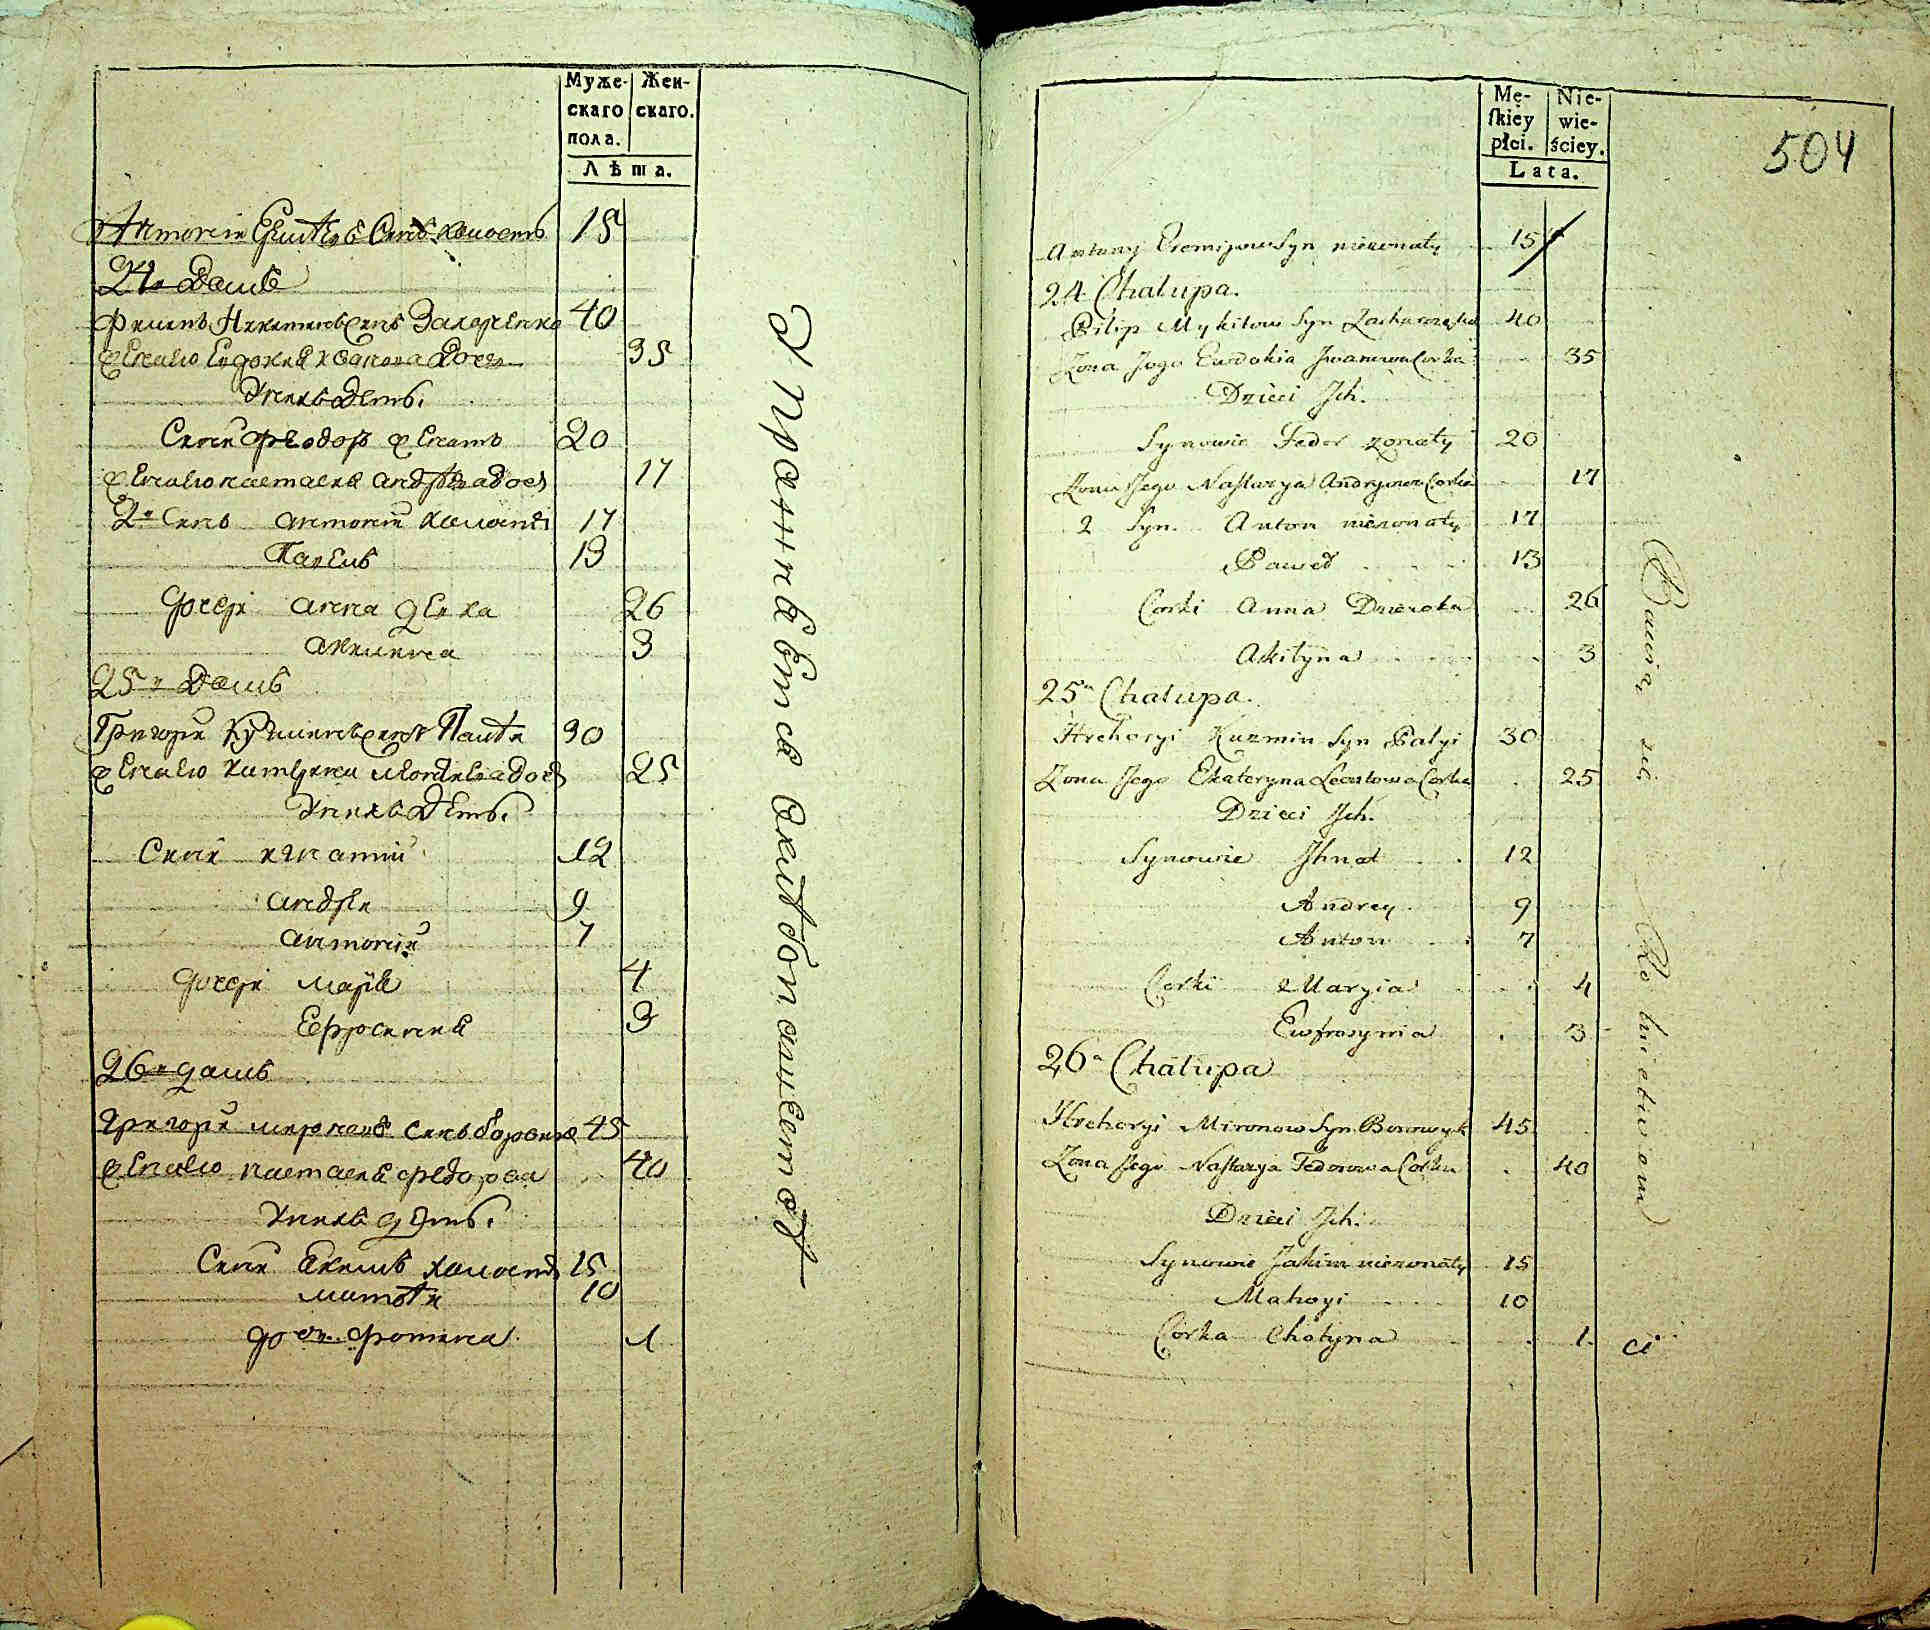 Муже- Жен-
скаго скаго.
пола.
Лѣта.
Антоній сынъ холостъ 15
24й Домъ
Филипъ Никитинъ сынъ Захарченко 40
жена его Евдокия Иванова дочь 35
Унихъ дети.
Сыни Феодоръ женатъ 20
жена его настасия андреева доч 17
2й сынъ антоній холостъ 17
Павелъ 13
Дочери анна девка 26
акилина 3
25й Домъ
Григори Кузминъ сынъ Палѣи 30
жена его катерина леонтиева доч 25
Унихъ Дети.
Сыни игнатий 12
андрѣи 9
антоний 7
дочери мария 4
Ефросиния 3
26й домъ
Григори мироновъ синъ боровикъ 45
жена его настасия федорова 40
Унихъ дети.
Сыни Якимъ холостъ 15
матвѣи 10
дочь фотина 1
Упражняется
Mę- Nie-
skiey wie-
płci. ściey.
Lata.
504
Antony Eremijow Syn niezonaty 15
24 Chałupa.
Pilip Mykitow Syn 40
Zona Jego Ewdokia Iwanowa Corka 35
Dzieci Jch.
Synowie Fedor zonaty 20
Zona Jego Nastazya Andryiewa Corka 17
2 Syn. Anton niezonaty 17
Paweł 13
Corki Anna Dziewka 26
Akilyna 3
25a Chałupa.
Hrehoryi Kuzmin Syn Palyi 30
Zona Jego Ekateryna Leontowa Corka 25
Dzieci Jch.
Synowie Jhnat 12
Andrey 9
Anton 7
Corki Maryia 4
Ewfrosynia 3
26a Chałupa
Hrehoryi Mironow Syn Borowyk 45
Zona Jego Nastazya Fedorowa Corka 40
Dzieci Jch.
Synowie Jakim niezonaty 15
Matwyi 10
Corka Chotyna 1
Bawią się